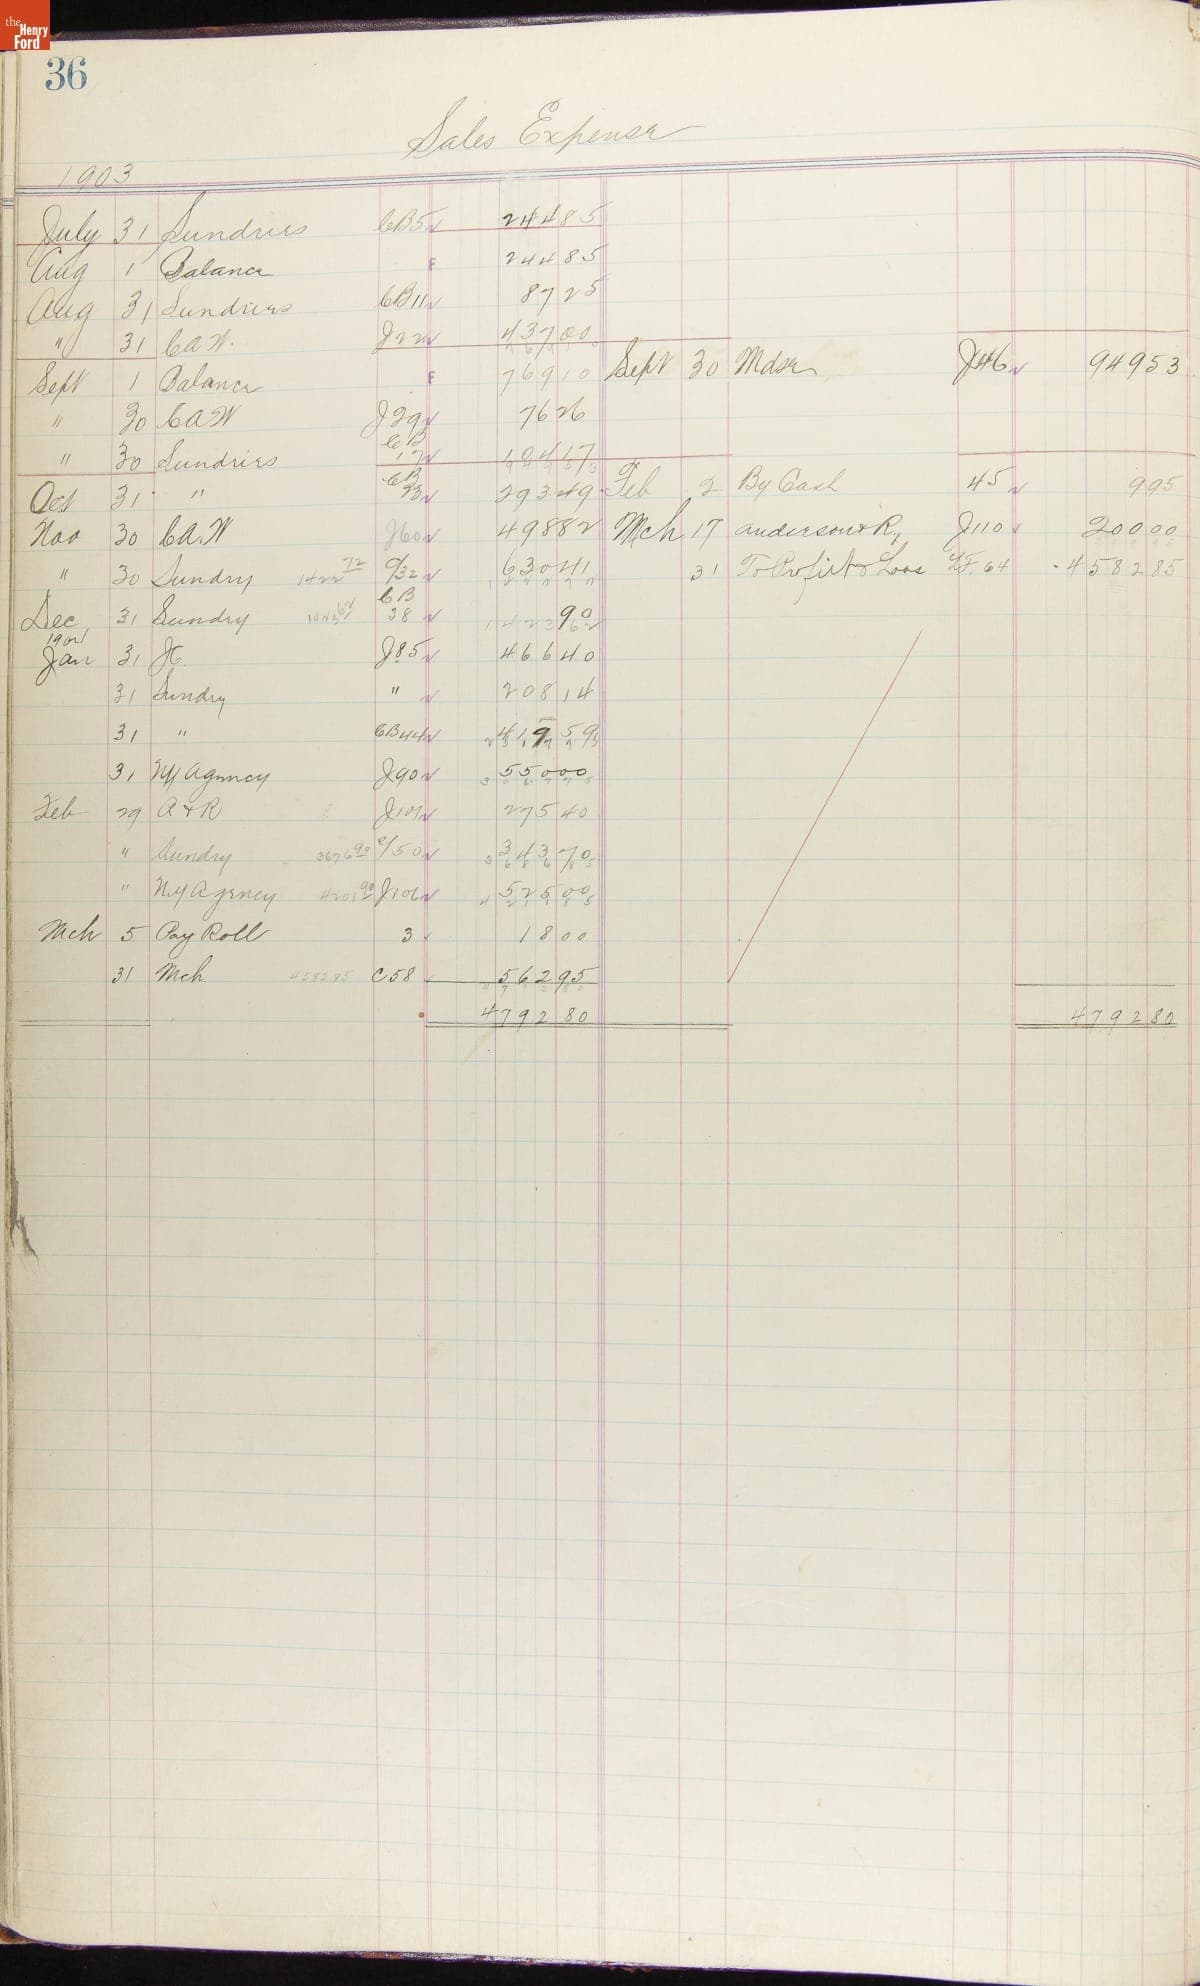 the Henry Ford
36
Sales Expense
1903
July 31 Sundries CB5 244 85
Aug 1 Balance F 244 85
Aug 31 Sundries CB11 87 25
" 31 C.A.W. J22 437 00
Sept 1 Balance F 769 10 Sept 30 Mdse J46 949 53
" 30 C A W J29 76 26
" 30 Sundries CB 17 104 17
Oct 31 " CB 23 293 49 Feb 2 By Cash 45 9 95
Nov 30 C.A.W J60 498 82 Mch 17 Anderson & R, J110 200 00
" 30 Sundry 1422 72 C/32 630 41 31 To Profit & Loss L.F. 64 4582 85
Dec 31 Sundry CB 38 90
1904
Jan 31 J85 466 40
31 Sundry " 208 14
31 " CB44 419 59
31 N.Y Agency J90 550 00
Feb 29 A & R J107 275 40
" Sundry 3676 90 C/50 343 70
" N.Y Agency 4201 90 J106 525 00
Mch 5 Pay Roll 3 18 00
31 Mch. 4582 85 C58 562 95
4792 80 4792 80